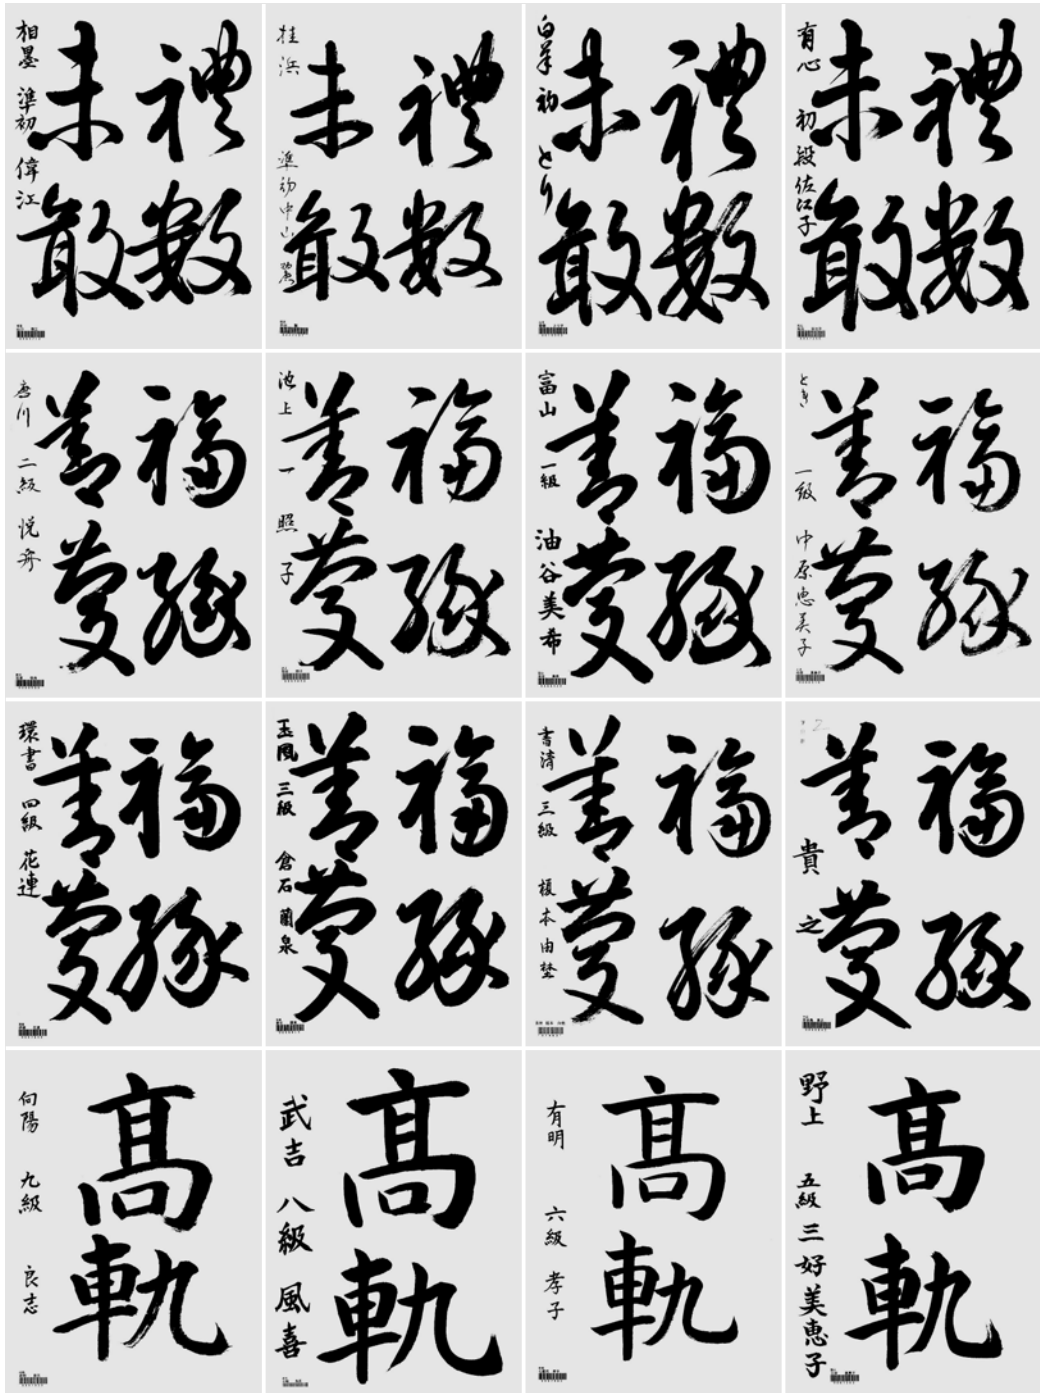 禮數
未敢
相墨 準初 偉江
禮數
未敢
桂浜 準初 中山
禮數
未敢
白羊 初 とり
禮數
未敢
有心 初段 佐江子
福緣
善慶
二級 悦舟
福緣
善慶
池上 一 照子
福緣
善慶
富山 一級 油谷美希
福緣
善慶
とき 一級 中原恵美子
福緣
善慶
環書 四級 花連
福緣
善慶
玉風 三級 倉石蘭泉
福緣
善慶
書清 三級 榎本由埜
福緣
善慶
貴之
高軌
向陽 九級 良志
高軌
武吉 八級 風喜
高軌
有明 六級 孝子
高軌
野上 五級 三好美恵子